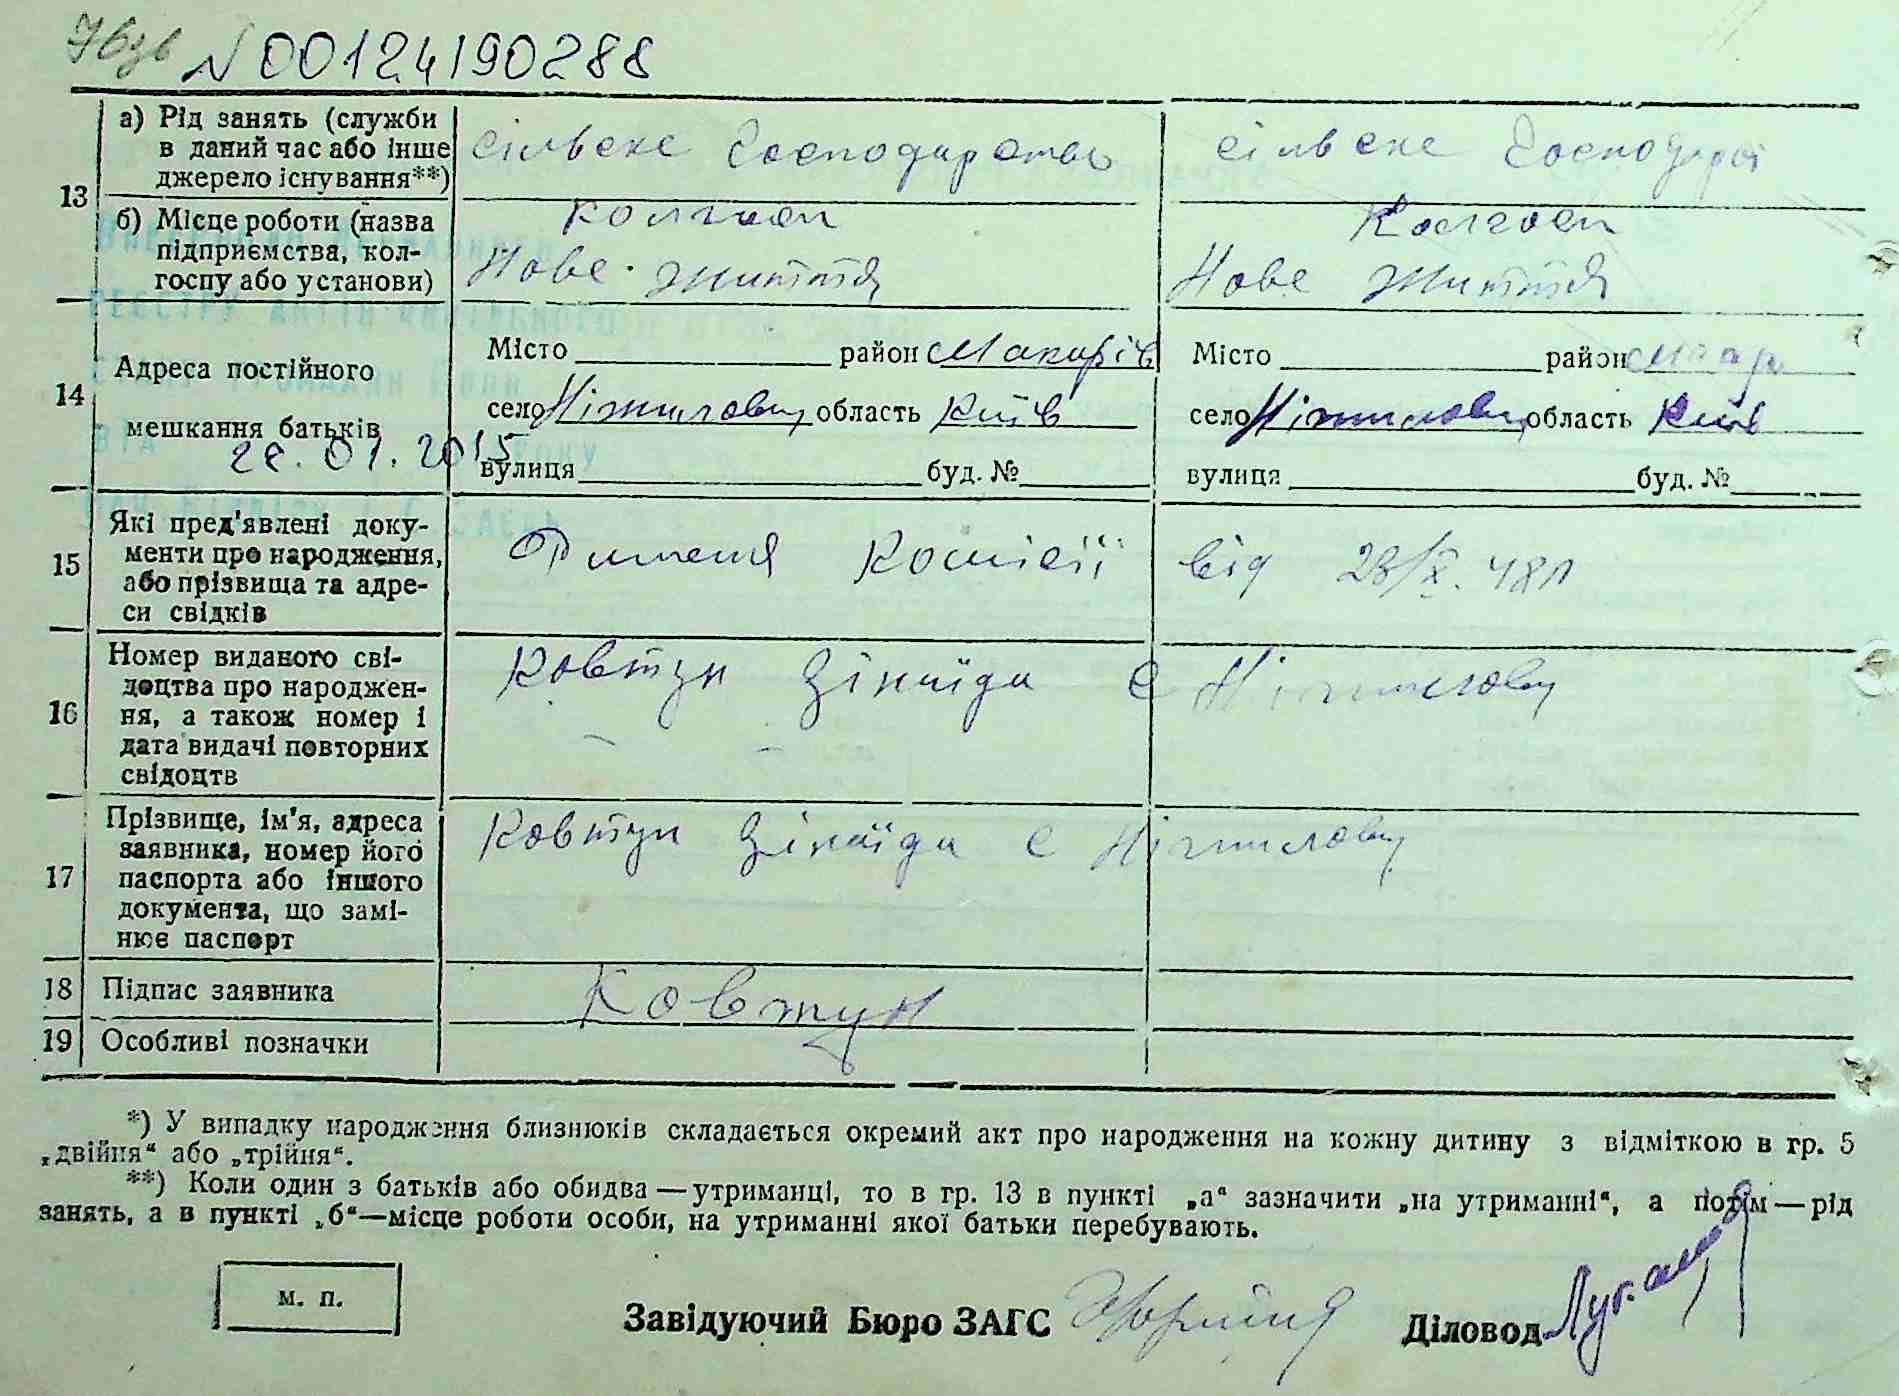 N 00124190288
13
а) Рід занять (служби
в даний час або інше
джерело існування**)
сільске господарство
сільске господар
б) Місце роботи (назва
підприємства, кол-
госпу або установи)
колгосп
Нове життя
колгосп
Нове життя
14
Адреса постійного
мешкання батьків
Місто район Макарів
село Ніжиловичі область Київ
вулиця буд. №
Місто район Макар
село Ніжиловичі область Київ
вулиця буд. №
.01.2015 року
РЕЄСТРУ АКТІВ ЦИВІЛЬНОГО
15
Які пред'явлені доку-
менти про народження,
або прізвища та адре-
си свідків
комісії від 23/X.48 р
16
Номер виданого сві-
доцтва про народжен-
ня, а також номер і
дата видачі повторних
свідоцтв
Ковтун Зінаїда с Ніжиловичі
17
Прізвище, ім'я, адреса
заявника, номер його
паспорта або іншого
документа, що замі-
нює паспорт
Ковтун Зінаїда с Ніжиловичі
18 Підпис заявника
Ковтун
19 Особливі позначки
*) У випадку народження близнюків складається окремий акт про народження на кожну дитину з відміткою в гр. 5
„двійня“ або „трійня“.
**) Коли один з батьків або обидва—утриманці, то в гр. 13 в пункті „а“ зазначити „на утриманні“, а потім—рід
занять, а в пункті „б“—місце роботи особи, на утриманні якої батьки перебувають.
м. п.
Завідуючий Бюро ЗАГС
Діловод